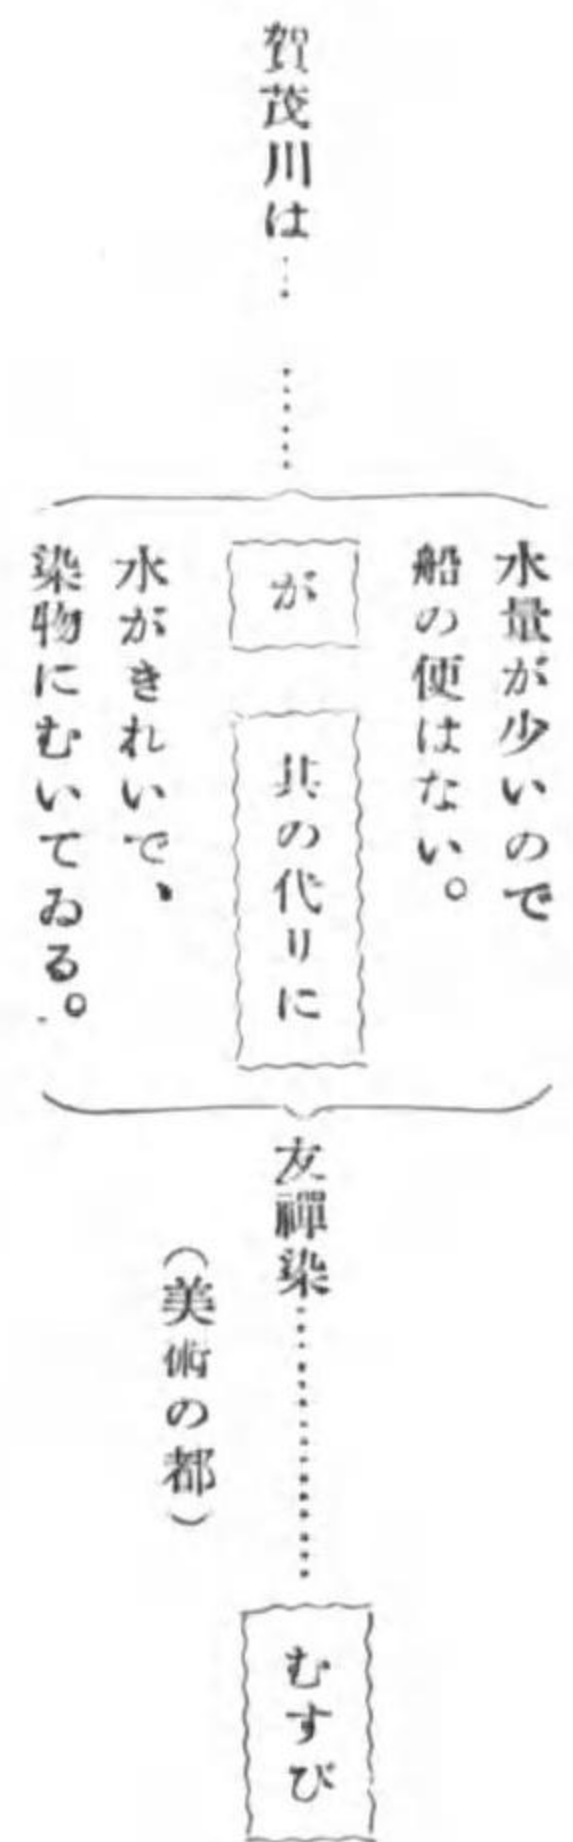 賀茂川は………
水量が少いので
船の便はない。
が
其の代りに
水がきれいで、
染物にむいてゐる。
友禪染…………
（美術の都）
むすび